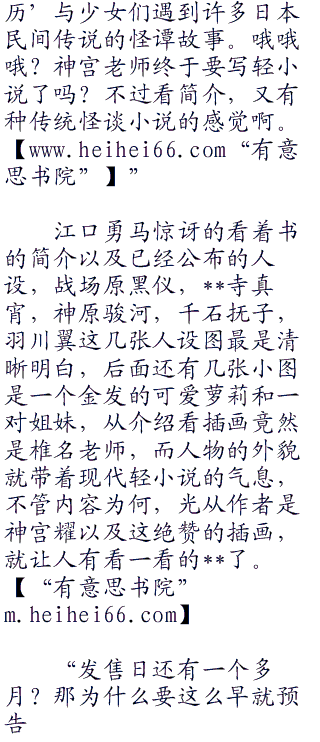 历’与少女们遇到许多日本
民间传说的怪谭故事。哦哦
哦？神宫老师终于要写轻小
说了吗？不过看简介，又有
种传统怪谈小说的感觉啊。
【www.heihei66.com“有意
思书院”】”
江口勇马惊讶的看着书
的简介以及已经公布的人
设，战场原黑仪，**寺真
宵，神原骏河，千石抚子，
羽川翼这几张人设图最是清
晰明白，后面还有几张小图
是一个金发的可爱萝莉和一
对姐妹，从介绍看插画竟然
是椎名老师，而人物的外貌
就带着现代轻小说的气息，
不管内容为何，光从作者是
神宫耀以及这绝赞的插画，
就让人有看一看的**了。
【“有意思书院”
m.heihei66.com】
“发售日还有一个多
月？那为什么要这么早就预
告